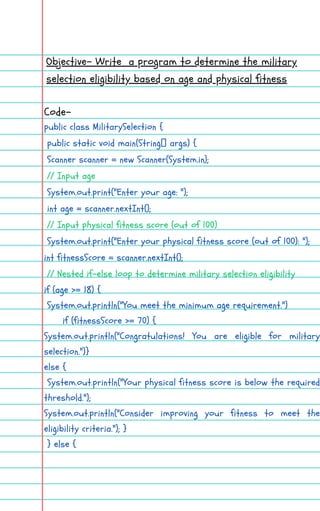 Objective- Write a program to determine the military
selection eligibility based on age and physical fitness
Code-
public class MilitarySelection {
public static void main(String[] args) {
Scanner scanner = new Scanner(System.in);
// Input age
System.out.print("Enter your age: ");
int age = scanner.nextInt();
// Input physical fitness score (out of 100)
System.out.print("Enter your physical fitness score (out of 100): ");
int fitnessScore = scanner.nextInt();
// Nested if-else loop to determine military selection eligibility
if (age >= 18) {
System.out.println("You meet the minimum age requirement.")
if (fitnessScore >= 70) {
System.out.println("Congratulations! You are eligible for military
selection.")}
else {
System.out.println("Your physical fitness score is below the required
threshold.");
System.out.println("Consider improving your fitness to meet the
eligibility criteria."); }
} else {